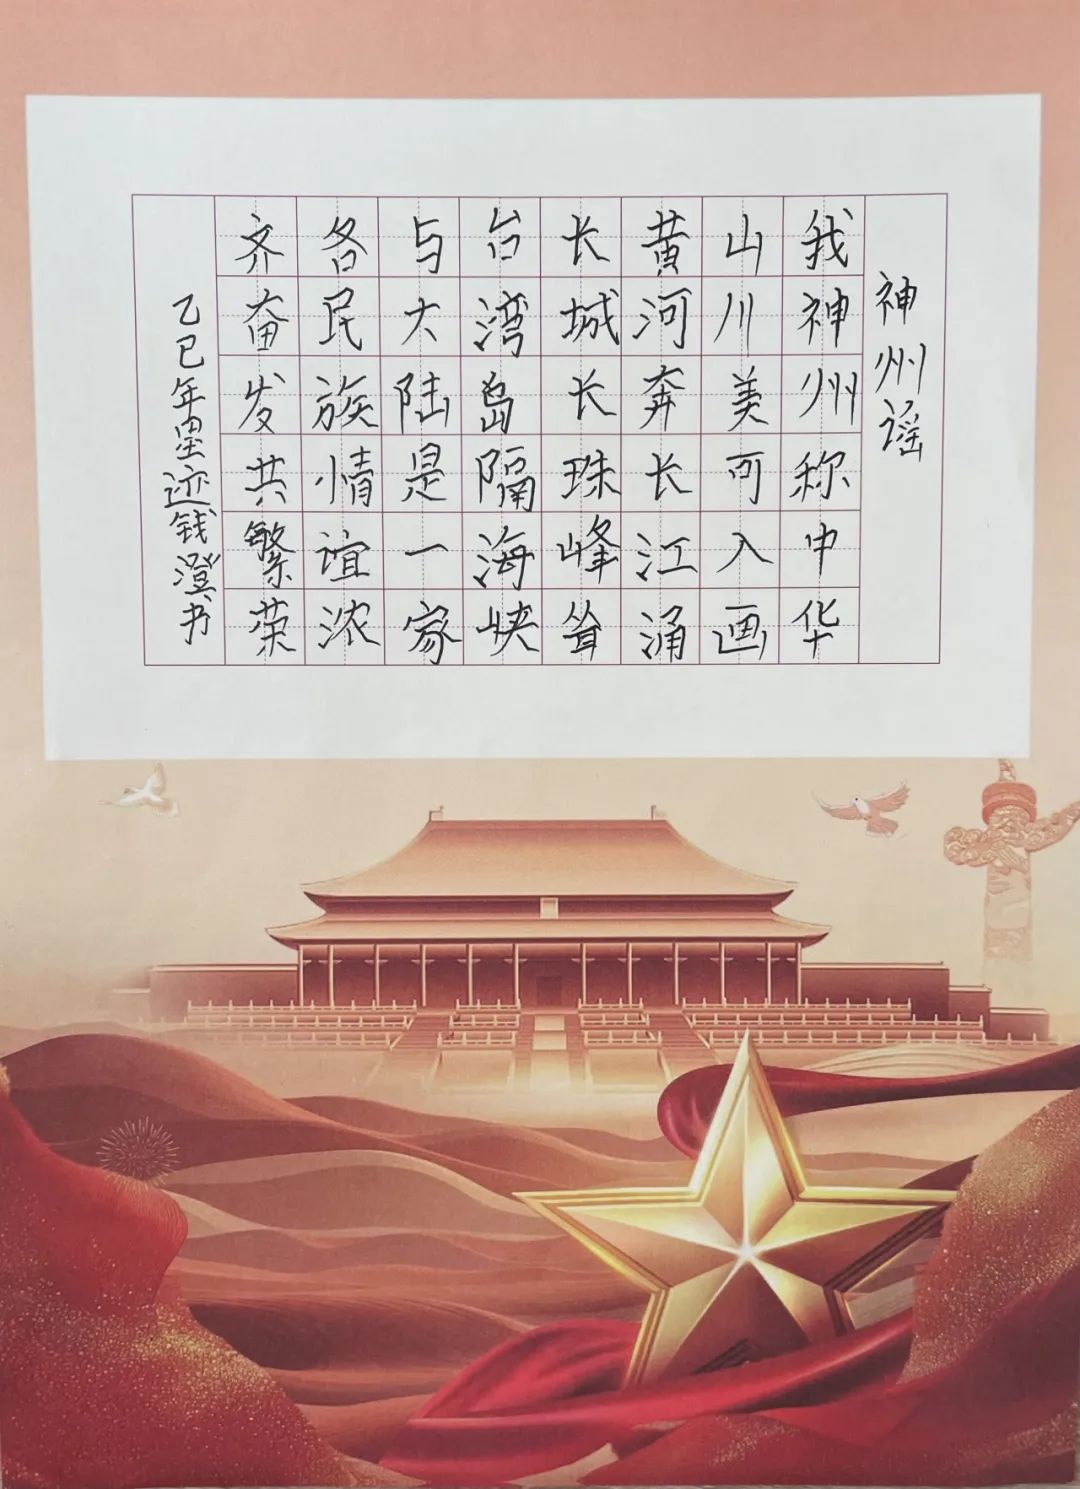 神州谣
我神州称中华
山川美可入画
黄河奔长江涌
长城长珠峰耸
台湾岛隔海峡
与大陆是一家
各民族情谊浓
齐奋发共繁荣
乙巳年墨迹钱澄书